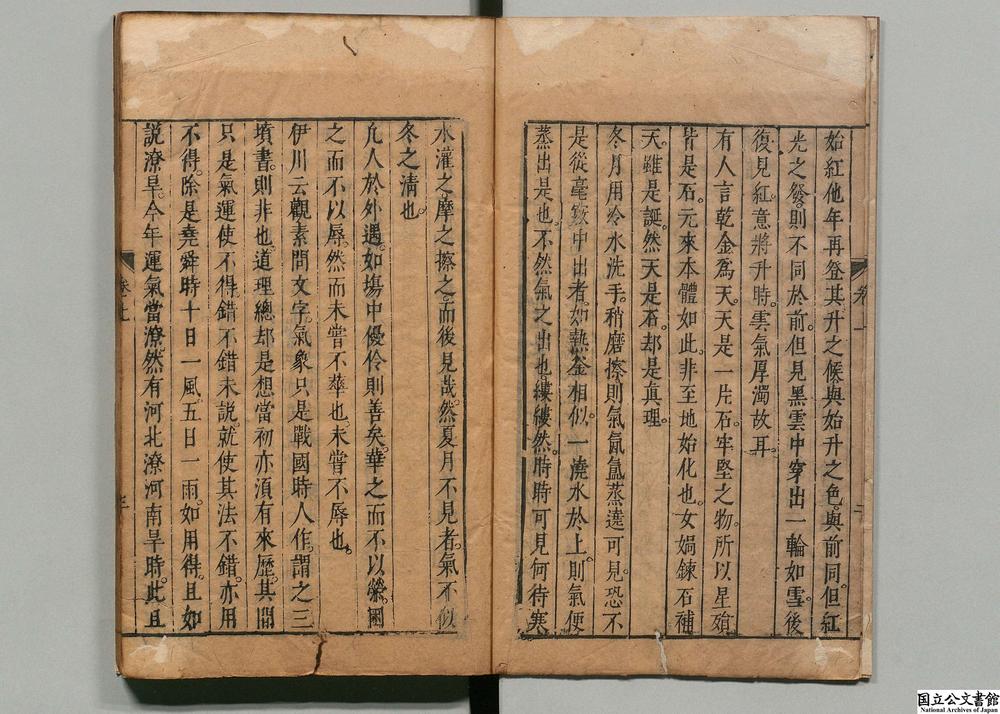 始紅他年再登其升之候與始升之色與前同但紅
光之發則不同於前但見黑雲中穿出一輪如雪後
復見紅意將升時雲氣厚濁故耳
有人言乾金爲天天是一片石牢堅之物所以星殞
皆是石元來本體如此非至地始化也女媧鍊石補
天雖是誕然天是石却是真理
冬月用冷水洗手稍磨擦則氣氤氳蒸達可見恐不
是從毫竅中出者如熱釜相似一澆水於上則氣便
蒸出是也不然氣之出也縷縷然時時可見何待寒
水灌之摩之擦之而後見哉然夏月不見者氣不似
冬之清也
凡人於外遇如塲中優伶則善矣華之而不以榮
之而不以辱然而未嘗不華也未嘗不辱也
伊川云觀素問文字氣象只是戰國時人作謂之三
墳書則非也道理總却是想當初亦須有來歷其間
只是氣運使不得錯不錯未説就使其法不錯亦用
不得除是堯舜時十日一風五日一雨如用得且如
説潦旱今年運氣當潦然有河北潦河南旱時此且
卷七
国立公文書館
National Archives of Japan